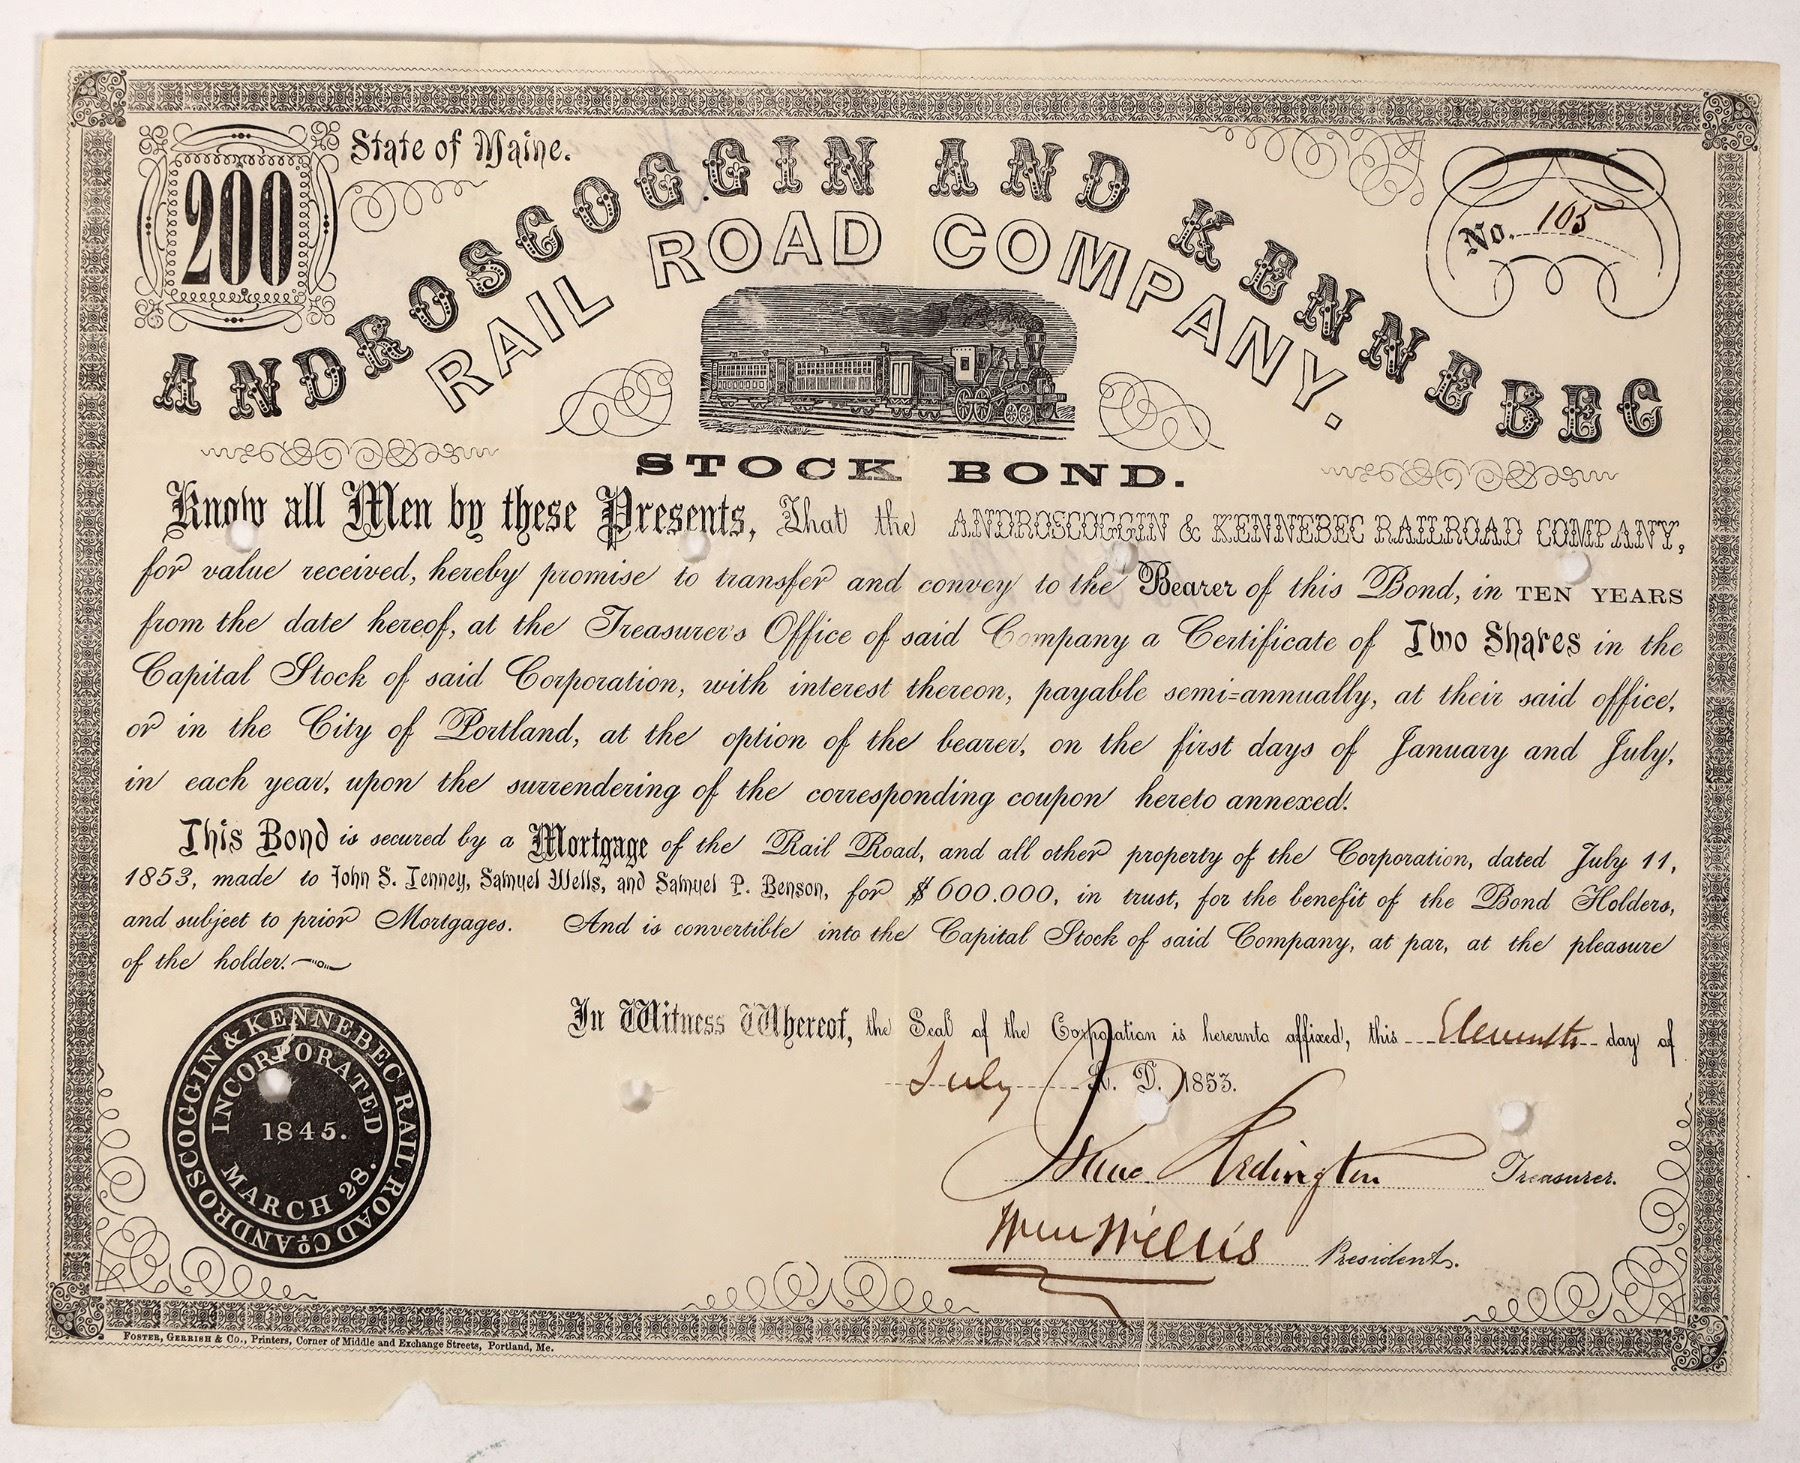 200
State of Maine.
No. 105
ANDROSCOGGIN AND KENNEBEC
RAIL ROAD COMPANY.
STOCK BOND.
Know all Men by these Presents, That the ANDROSCOGGIN & KENNEBEC RAILROAD COMPANY,
for value received, hereby promise to transfer and convey to the Bearer of this Bond, in TEN YEARS
from the date hereof, at the Treasurer's Office of said Company a Certificate of Two Shares in the
Capital Stock of said Corporation, with interest thereon, payable semi=annually, at their said office,
or in the City of Portland, at the option of the bearer, on the first days of January and July,
in each year, upon the surrendering of the corresponding coupon hereto annexed.
This Bond is secured by a Mortgage of the Rail Road, and all other property of the Corporation, dated July 11,
1853, made to John S. Tenney, Samuel Wells, and Samuel P. Benson, for $600.000, in trust, for the benefit of the Bond Holders,
and subject to prior Mortgages. And is convertible into the Capital Stock of said Company, at par, at the pleasure
of the holder.
In Witness Whereof, the Seal of the Corporation is hereunto affixed, this Eleventh day of
July A. D. 1853.
ANDROSCOGGIN & KENNEBEC RAIL ROAD Co
INCORPORATED
1845.
MARCH 28.
Isaac Redington Treasurer.
Wm Willis President.
FOSTER, GERRISH & Co., Printers, Corner of Middle and Exchange Streets, Portland, Me.